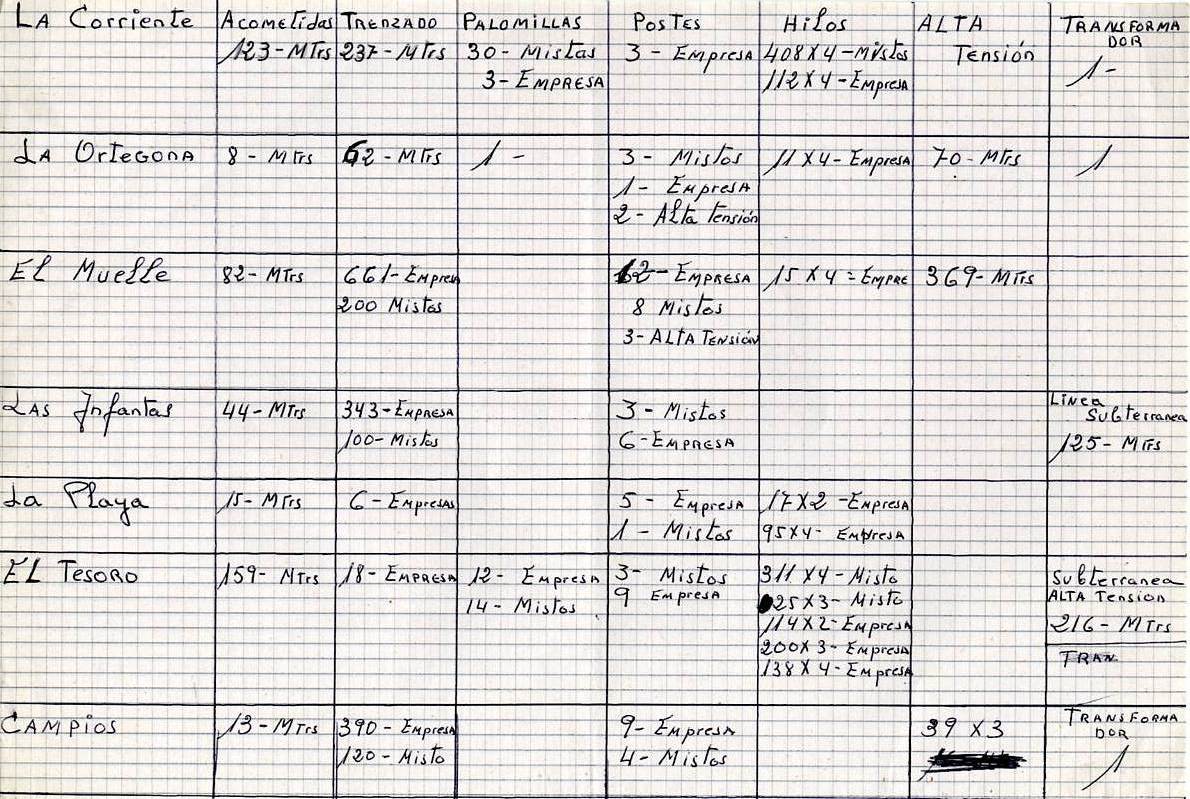 La Corriente Acometidas Trenzado Palomillas Postes Hilos ALTA TRANSFORMA
DOR
123-Mtrs 237-Mtrs 30-Mistas 3-Empresa 408X4-Mistos Tensión 1-
3-Empresa 112X4-Empresa
La Ortegona 8-Mtrs 62-Mtrs 1- 3-Mistos 11X4-Empresa 70-Mtrs 1
1-Empresa
2-Alta tensión
El Muelle 82-Mtrs 661-Empresa 12-Empresa 15X4=Empre 369-Mtrs
200 Mistos 8 Mistos
3-Alta Tensión
Las Infantas 44-Mtrs 343-Empresa 3-Mistos Linea
Subterranea
100-Mistos 6-Empresa 125-Mtrs
La Playa 15-Mtrs 6-Empresas 5-Empresa 17X2-Empresa
1-Mistos 95X4-Empresa
El Tesoro 159-Mtrs 18-Empresa 12-Empresa 3-Mistos 311X4-Misto Subterranea
14-Mistos 9 Empresa 25X3-Misto Alta Tension
114X2-Empresa 216-Mtrs
200X3-Empresa TRAN
138X4-Empresa
Campios 13-Mtrs 390-Empresa 9-Empresa 39X3 TRANSFORMA
DOR
120-Misto 4-Mistos 1